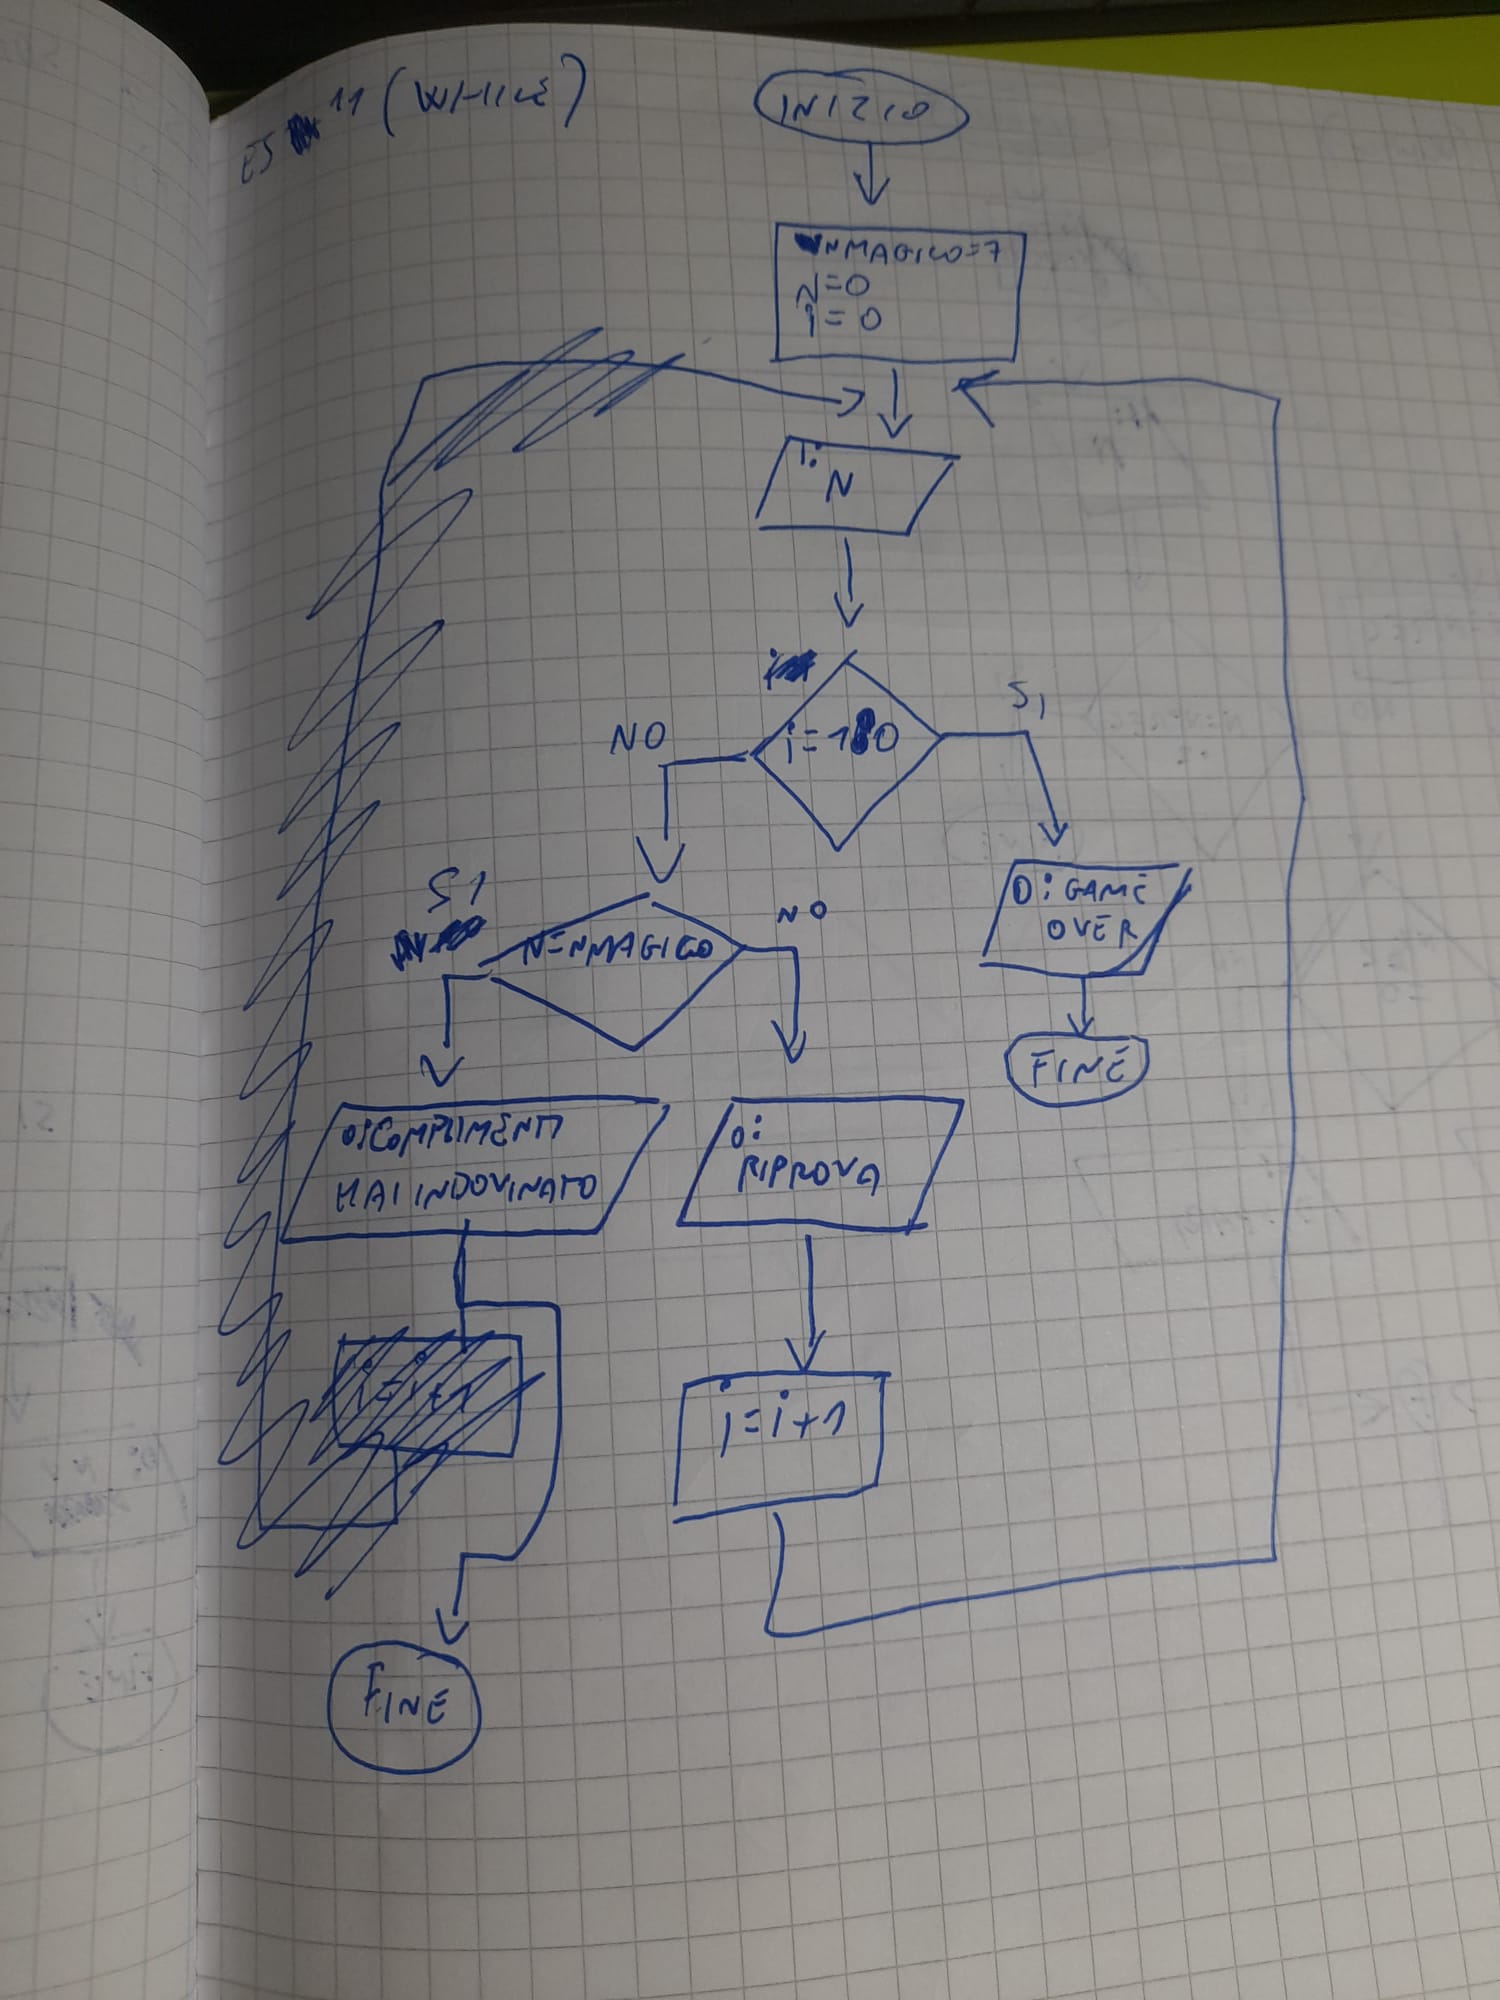 ES 11 (WHILE)
INIZIO
NMAGICO=7
N=0
i=0
I:
N
i=10
NO
SI
O: GAME
OVER
FINE
N=NMAGICO
SI
NO
O: COMPLIMENTI
HAI INDOVINATO
O:
RIPROVA
i=i+1
i=i+1
FINE